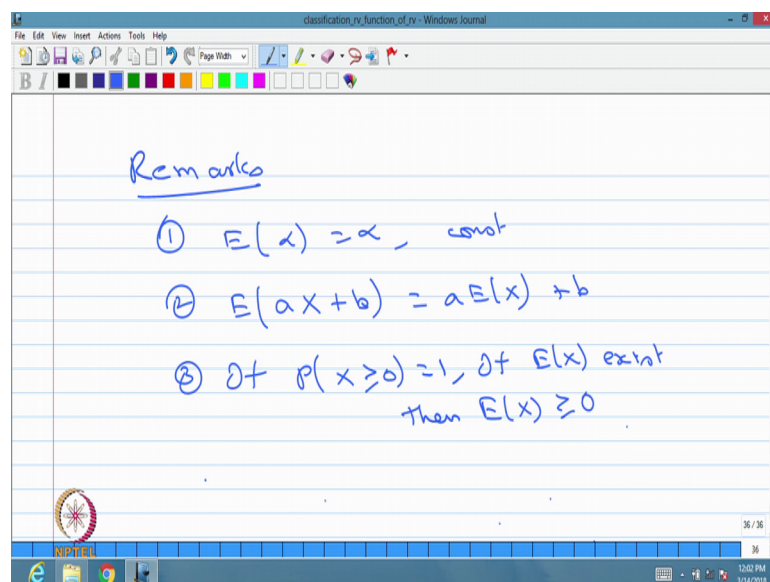 classification_rv_function_of_rv - Windows Journal
File Edit View Insert Actions Tools Help
Page Width
B I
Remarks
① E(α) = α, const
② E(aX+b) = aE(X) + b
③ If P(X≥0) = 1, If E(X) exist
then E(X) ≥ 0
36 / 36
NPTEL
36
12:02 PM